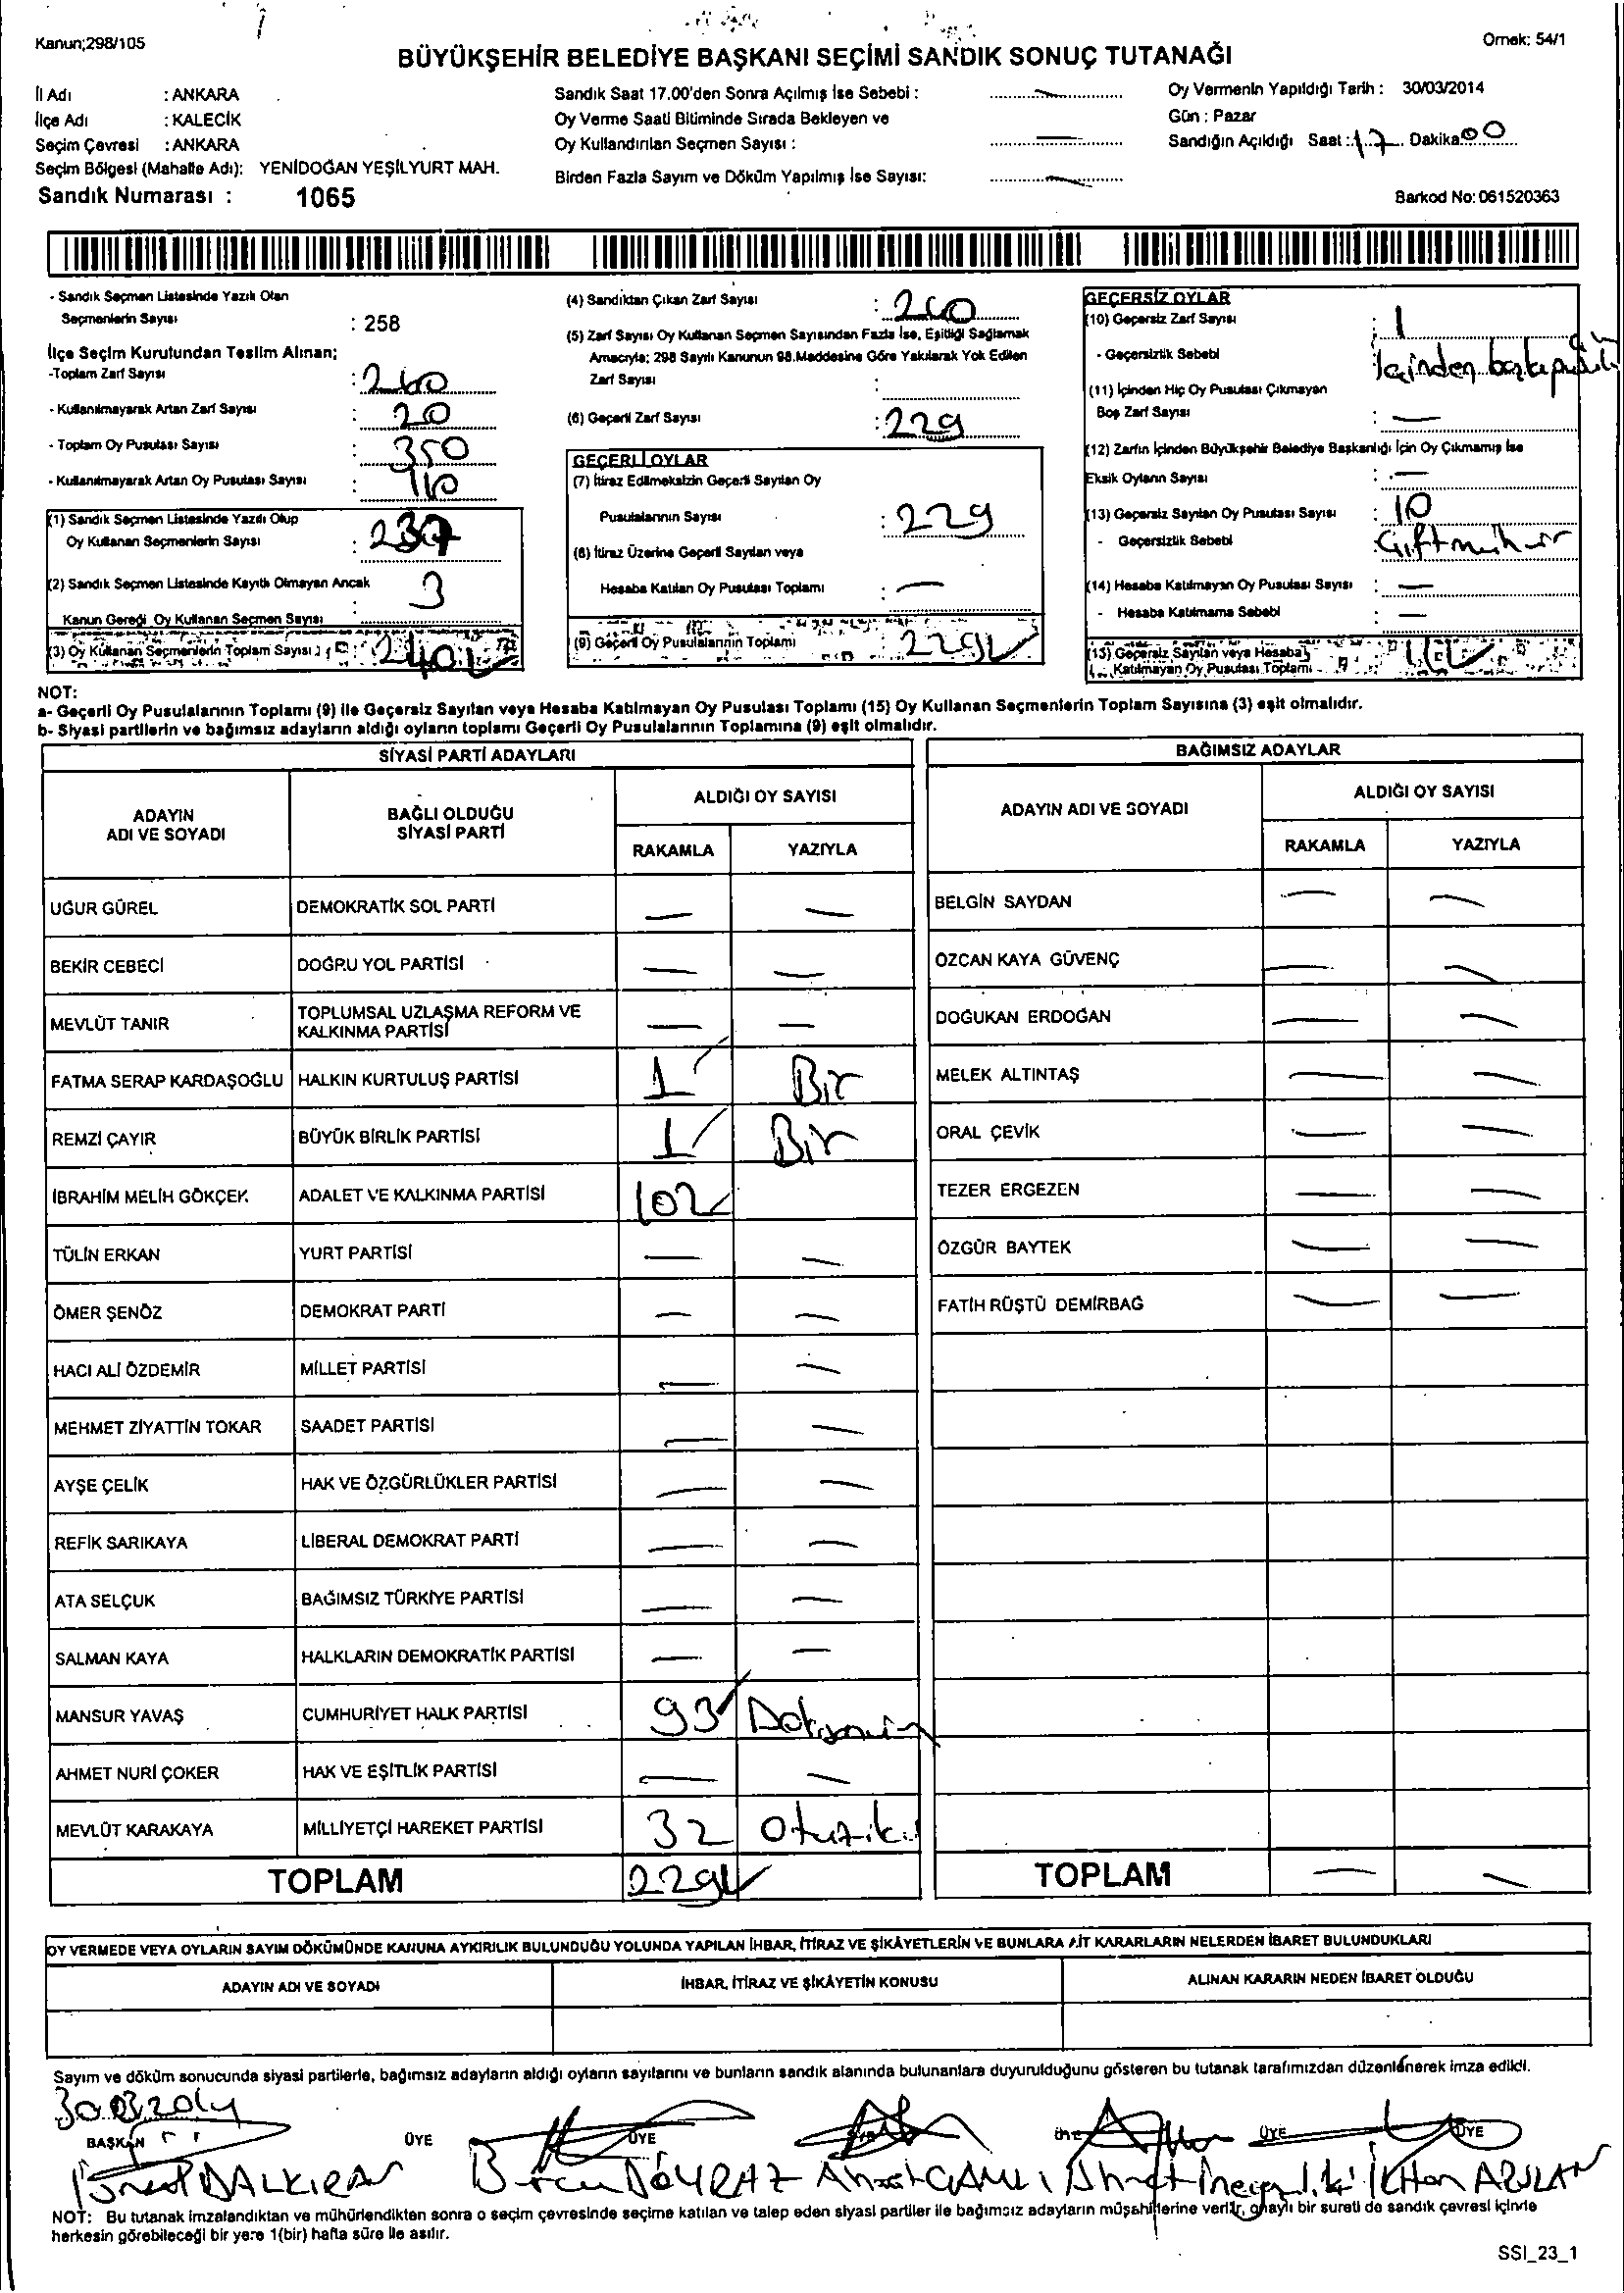 Kanun;298/105
Örnek: 54/1
BÜYÜKŞEHİR BELEDİYE BAŞKANI SEÇİMİ SANDIK SONUÇ TUTANAĞI
İl Adı : ANKARA
İlçe Adı : KALECİK
Seçim Çevresi : ANKARA
Seçim Bölgesi (Mahalle Adı): YENİDOĞAN YEŞİLYURT MAH.
Sandık Numarası : 1065
Sandık Saat 17.00'den Sonra Açılmış İse Sebebi : —
Oy Verme Saati Bitiminde Sırada Bekleyen ve
Oy Kullandırılan Seçmen Sayısı : —
Birden Fazla Sayım ve Döküm Yapılmış İse Sayısı: —
Oy Vermenin Yapıldığı Tarih : 30/03/2014
Gün : Pazar
Sandığın Açıldığı Saat : 17 Dakika 00
Barkod No: 061520363
- Sandık Seçmen Listesinde Yazılı Olan
Seçmenlerin Sayısı : 258
İlçe Seçim Kurulundan Teslim Alınan;
-Toplam Zarf Sayısı : 260
- Kullanılmayarak Artan Zarf Sayısı : 20
- Toplam Oy Pusulası Sayısı : 350
- Kullanılmayarak Artan Oy Pusulası Sayısı : 110
(1) Sandık Seçmen Listesinde Yazılı Olup
Oy Kullanan Seçmenlerin Sayısı : 237
(2) Sandık Seçmen Listesinde Kayıtlı Olmayan Ancak
Kanun Gereği Oy Kullanan Seçmen Sayısı : 3
(3) Oy Kullanan Seçmenlerin Toplam Sayısı : 240
(4) Sandıktan Çıkan Zarf Sayısı : 240
(5) Zarf Sayısı Oy Kullanan Seçmen Sayısından Fazla İse, Eşitliği Sağlamak
Amacıyla; 298 Sayılı Kanunun 98.Maddesine Göre Yakılarak Yok Edilen
Zarf Sayısı :
(6) Geçerli Zarf Sayısı : 229
GEÇERLİ OYLAR
(7) İtiraz Edilmeksizin Geçerli Sayılan Oy
Pusulalarının Sayısı : 229
(8) İtiraz Üzerine Geçerli Sayılan veya
Hesaba Katılan Oy Pusulası Toplamı : —
(9) Geçerli Oy Pusulalarının Toplamı 229
GEÇERSİZ OYLAR
(10) Geçersiz Zarf Sayısı : 1
- Geçersizlik Sebebi İçinden
(11) İçinden Hiç Oy Pusulası Çıkmayan
Boş Zarf Sayısı : —
(12) Zarfın İçinden Büyükşehir Belediye Başkanlığı İçin Oy Çıkmamış İse
Eksik Oyların Sayısı : —
(13) Geçersiz Sayılan Oy Pusulası Sayısı : 10
- Geçersizlik Sebebi Çift mühür
(14) Hesaba Katılmayan Oy Pusulası Sayısı : —
- Hesaba Katılmama Sebebi : —
(15) Geçersiz Sayılan veya Hesaba
Katılmayan Oy Pusulası Toplamı 11
NOT:
a- Geçerli Oy Pusulalarının Toplamı (9) ile Geçersiz Sayılan veya Hesaba Katılmayan Oy Pusulası Toplamı (15) Oy Kullanan Seçmenlerin Toplam Sayısına (3) eşit olmalıdır.
b- Siyasi partilerin ve bağımsız adayların aldığı oyların toplamı Geçerli Oy Pusulalarının Toplamına (9) eşit olmalıdır.
SİYASİ PARTİ ADAYLARI
ADAYIN ADI VE SOYADI
BAĞLI OLDUĞU SİYASİ PARTİ
ALDIĞI OY SAYISI
RAKAMLA YAZIYLA
UĞUR GÜREL DEMOKRATİK SOL PARTİ — —
BEKİR CEBECİ DOĞRU YOL PARTİSİ — —
MEVLÜT TANIR TOPLUMSAL UZLAŞMA REFORM VE KALKINMA PARTİSİ — —
FATMA SERAP KARDAŞOĞLU HALKIN KURTULUŞ PARTİSİ 1 Bir
REMZİ ÇAYIR BÜYÜK BİRLİK PARTİSİ 1 Bir
İBRAHİM MELİH GÖKÇEK ADALET VE KALKINMA PARTİSİ 102
TÜLİN ERKAN YURT PARTİSİ — —
ÖMER ŞENÖZ DEMOKRAT PARTİ — —
HACI ALİ ÖZDEMİR MİLLET PARTİSİ — —
MEHMET ZİYATTİN TOKAR SAADET PARTİSİ — —
AYŞE ÇELİK HAK VE ÖZGÜRLÜKLER PARTİSİ — —
REFİK SARIKAYA LİBERAL DEMOKRAT PARTİ — —
ATA SELÇUK BAĞIMSIZ TÜRKİYE PARTİSİ — —
SALMAN KAYA HALKLARIN DEMOKRATİK PARTİSİ — —
MANSUR YAVAŞ CUMHURİYET HALK PARTİSİ 93
AHMET NURİ ÇOKER HAK VE EŞİTLİK PARTİSİ — —
MEVLÜT KARAKAYA MİLLİYETÇİ HAREKET PARTİSİ 32 Otuziki
TOPLAM 229
BAĞIMSIZ ADAYLAR
ADAYIN ADI VE SOYADI
ALDIĞI OY SAYISI
RAKAMLA YAZIYLA
BELGİN SAYDAN — —
ÖZCAN KAYA GÜVENÇ — —
DOĞUKAN ERDOĞAN — —
MELEK ALTINTAŞ — —
ORAL ÇEVİK — —
TEZER ERGEZEN — —
ÖZGÜR BAYTEK — —
FATİH RÜŞTÜ DEMİRBAĞ — —
TOPLAM — —
OY VERMEDE VEYA OYLARIN SAYIM DÖKÜMÜNDE KANUNA AYKIRILIK BULUNDUĞU YOLUNDA YAPILAN İHBAR, İTİRAZ VE ŞİKÂYETLERİN VE BUNLARA AİT KARARLARIN NELERDEN İBARET BULUNDUKLARI
ADAYIN ADI VE SOYADI İHBAR, İTİRAZ VE ŞİKÂYETİN KONUSU ALINAN KARARIN NEDEN İBARET OLDUĞU
Sayım ve döküm sonucunda siyasi partilerle, bağımsız adayların aldığı oyların sayılarını ve bunların sandık alanında bulunanlara duyurulduğunu gösteren bu tutanak tarafımızdan düzenlenerek imza edildi.
30.03.2014
BAŞKAN ÜYE ÜYE ÜYE ÜYE ÜYE
DALKIRAN Burcu POYRAZ Ahmet İlhan ARSLAN
NOT: Bu tutanak imzalandıktan ve mühürlendikten sonra o seçim çevresinde seçime katılan ve talep eden siyasi partiler ile bağımsız adayların müşahitlerine verilir, onaylı bir sureti de sandık çevresi içinde
herkesin görebileceği bir yere 1(bir) hafta süre ile asılır.
SSI_23_1